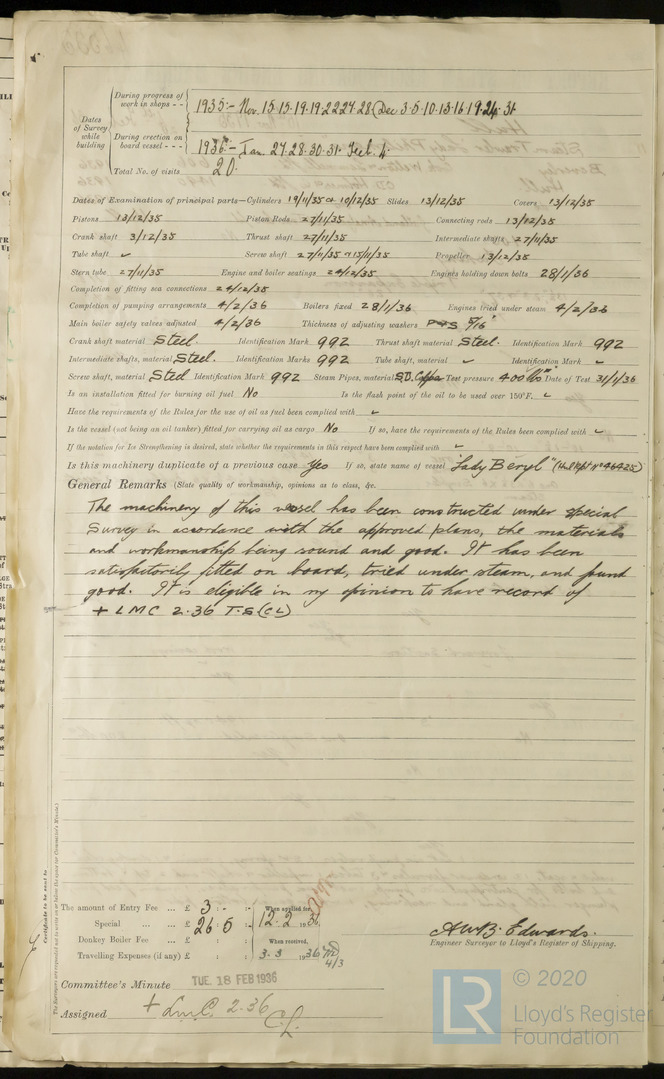 Dates of Survey while building
During progress of work in shops - - 1935:- Nov. 15.15.19.19.22.27.28 (Dec 3.5.10.13.16.19.24.31
During erection on board vessel - - - 1936:- Jan 27.28.30.31. Feb. 4.
Total No. of visits 20.
Dates of Examination of principal parts—Cylinders 19/11/35 & 10/12/35 Slides 13/12/35 Covers 13/12/35
Pistons 13/12/35 Piston Rods 27/11/35 Connecting rods 13/12/35
Crank shaft 3/12/35 Thrust shaft 27/11/35 Intermediate shafts 27/11/35
Tube shaft ✓ Screw shaft 27/11/35 15/11/35 Propeller 13/12/35
Stern tube 27/11/35 Engine and boiler seatings 24/12/35 Engines holding down bolts 28/1/36
Completion of fitting sea connections 24/12/35
Completion of pumping arrangements 4/2/36 Boilers fixed 28/1/36 Engines tried under steam 4/2/36
Main boiler safety valves adjusted 4/2/36 Thickness of adjusting washers P & S 5/16"
Crank shaft material Steel. Identification Mark 992 Thrust shaft material Steel. Identification Mark 992
Intermediate shafts, material Steel. Identification Marks 992 Tube shaft, material ✓ Identification Mark ✓
Screw shaft, material Steel Identification Mark 992 Steam Pipes, material S.D. Copper Test pressure 400 lbs" Date of Test 31/1/36
Is an installation fitted for burning oil fuel No Is the flash point of the oil to be used over 150°F. ✓
Have the requirements of the Rules for the use of oil as fuel been complied with ✓
Is the vessel (not being an oil tanker) fitted for carrying oil as cargo No If so, have the requirements of the Rules been complied with ✓
If the notation for Ice Strengthening is desired, state whether the requirements in this respect have been complied with ✓
Is this machinery duplicate of a previous case Yes If so, state name of vessel "Lady Beryl" (Hull Rpt No 46425)
General Remarks (State quality of workmanship, opinions as to class, &c.
The machinery of this vessel has been constructed under special
Survey in accordance with the approved plans, the materials
and workmanship being sound and good. It has been
satisfactorily fitted on board, tried under steam, and found
good. It is eligible in my opinion to have record of
+ LMC 2.36 T.S (CL)
Certificate to be sent to
The amount of Entry Fee ... £ 3 : - : When applied for,
Special ... £ 26 : 5 : 12.2 1936
Donkey Boiler Fee ... £ : : When received,
Travelling Expenses (if any) £ : : 3.3 1936 4/3
A. W. B. Edwards.
Engineer Surveyor to Lloyd's Register of Shipping.
Committee's Minute TUE. 18 FEB 1936
Assigned + LMC. 2.36 C.L.
LR
© 2020
Lloyd's Register
Foundation